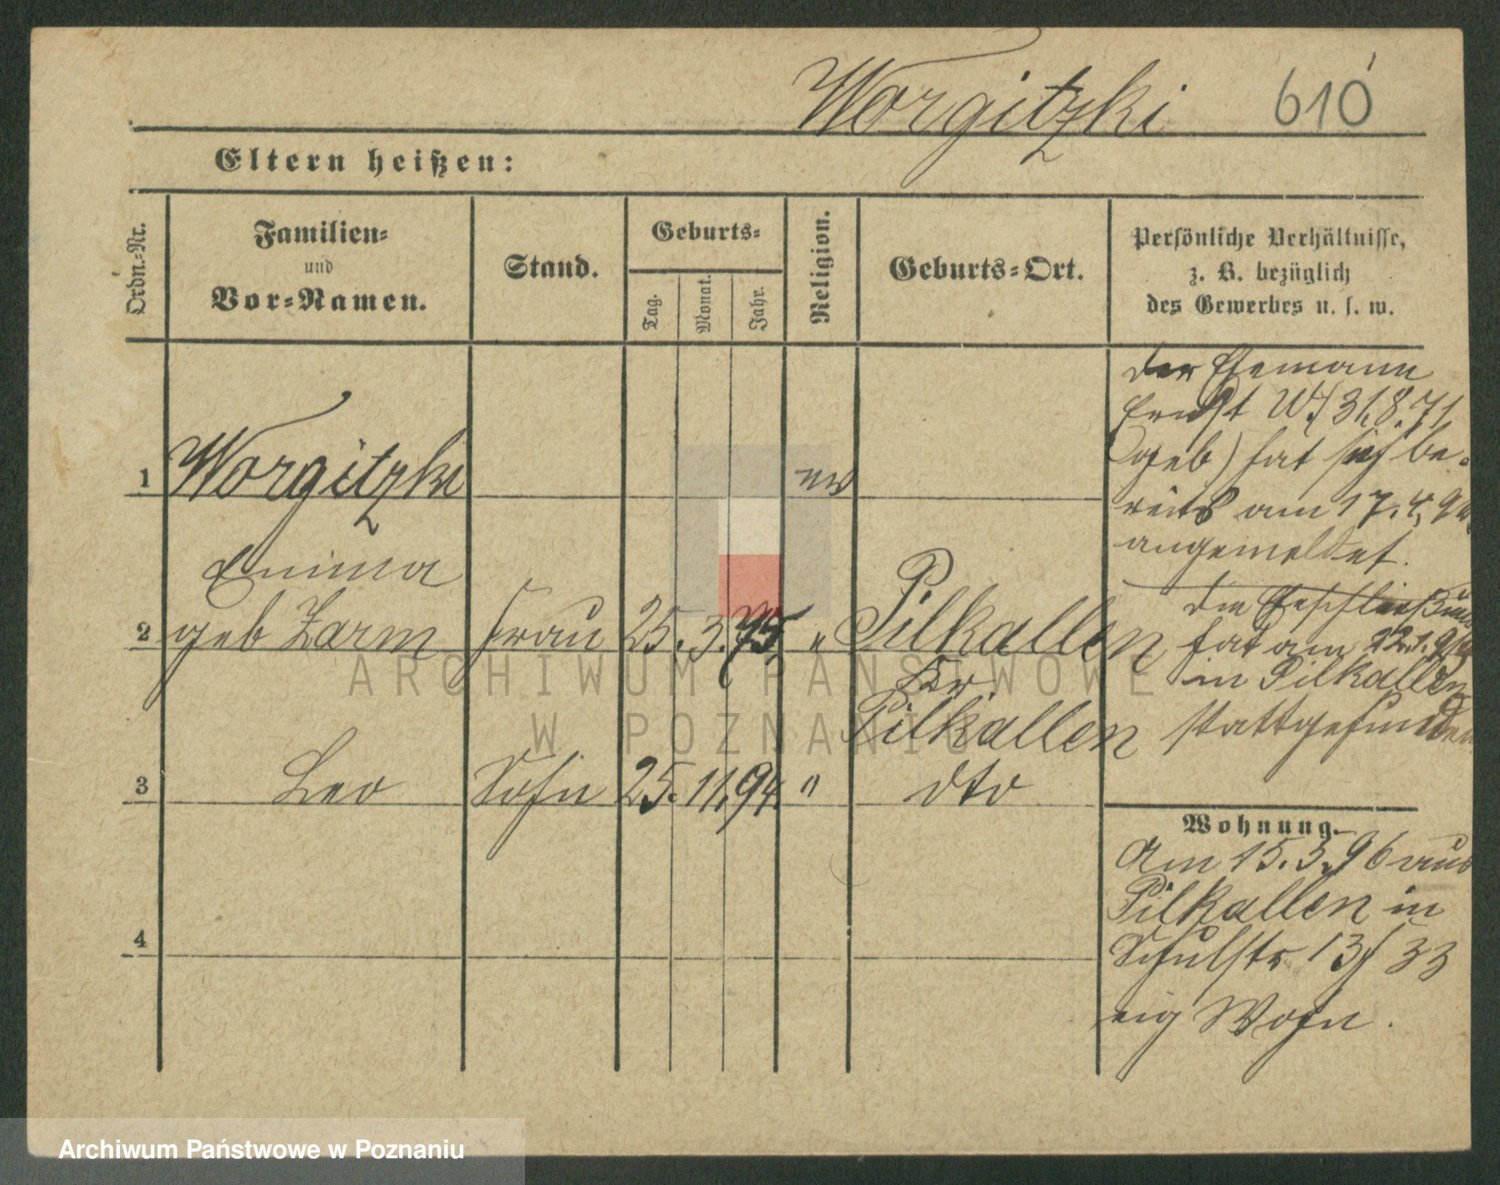 Worgitzki 610
Eltern heißen:
Ordn.-Nr.
Familien-
und
Vor-Namen.
Stand.
Geburts-
Tag.
Monat.
Jahr.
Religion.
Geburts-Ort.
Persönliche Verhältnisse,
z. B. bezüglich
des Gewerbes u. s. w.
1 Worgitzki ev
Emma
2 geb Zarm Frau 25. 3. 75 " Pilkallen
Kr.
Pilkallen
3 Leo Sohn 25. 11. 94. " dto
4
der Ehemann
Ernst W. (31.8.71
geb) hat sich be-
reits am 17.4.
angemeldet.
die Eheschließung
hat am 22.1.
in Pilkallen
stattgefunden
Wohnung.
Am 15.3.96 aus
Pilkallen in
Schulstr 13
eig Wohn.
ARCHIWUM PAŃSTWOWE
W POZNANIU
Archiwum Państwowe w Poznaniu